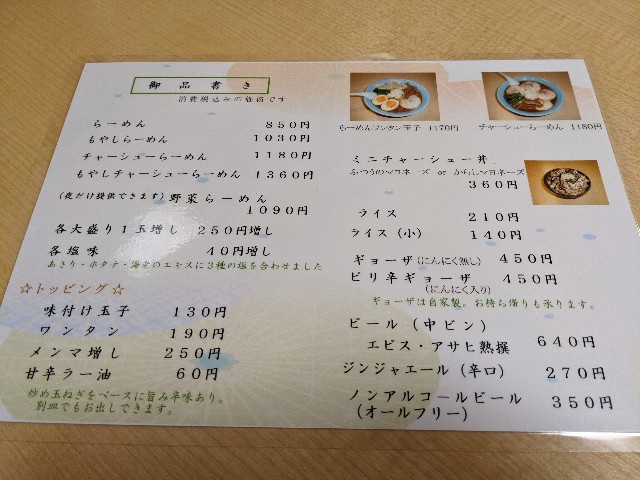 御品書き
消費税込みの価格です
らーめん 850円
もやしらーめん 1030円
チャーシューらーめん 1180円
もやしチャーシューらーめん 1360円
(夜だけ提供できます) 野菜らーめん
1090円
各大盛り1玉増し 250円増し
各塩味 40円増し
あさり・ホタテ・海老のエキスに3種の塩を合わせました
☆トッピング☆
味付け玉子 130円
ワンタン 190円
メンマ増し 250円
甘辛ラー油 60円
炒め玉ねぎをベースに旨み辛味あり。
別皿でもお出しできます。
らーめんワンタン玉子 1170円
チャーシューらーめん 1180円
ミニチャーシュー丼
ふつうのマヨネーズ or からしマヨネーズ
360円
ライス 210円
ライス(小) 140円
ギョーザ(にんにく無し) 450円
ピリ辛ギョーザ 450円
(にんにく入り)
ギョーザは自家製。お持ち帰りも承ります。
ビール(中ビン)
エビス・アサヒ熟撰 640円
ジンジャエール(辛口) 270円
ノンアルコールビール 350円
(オールフリー)